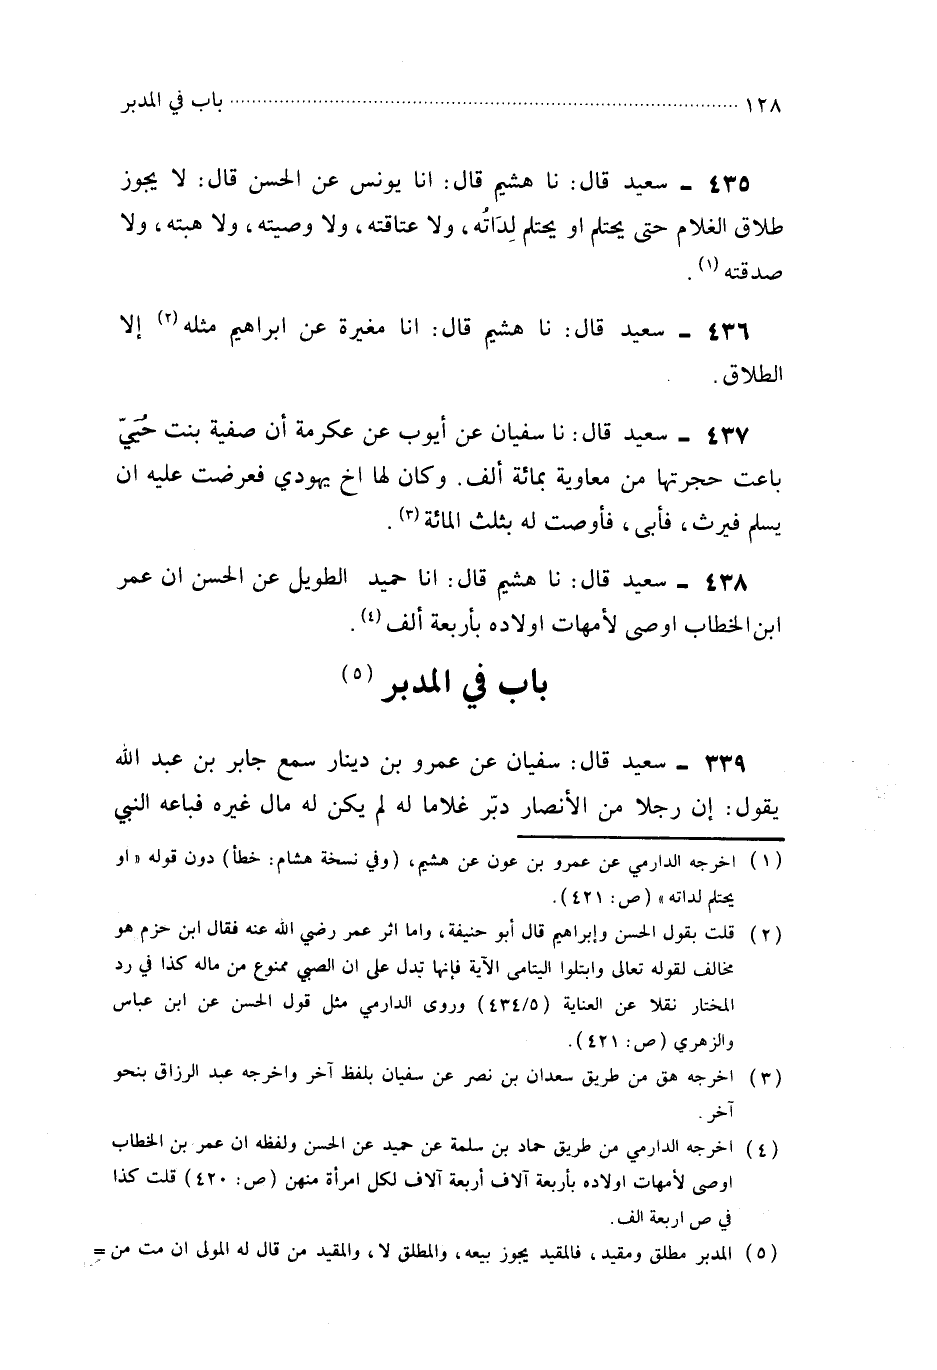 ١٢٨ ........................................ باب في المدبر
٤٣٥ ـ سعيد قال: نا هشيم قال: انا يونس عن الحسن قال: لا يجوز
طلاق الغلام حتى يحتلم او يحتلم لِدَاتُه، ولا عتاقته، ولا وصيته، ولا هبته، ولا
صدقته (١).
٤٣٦ ـ سعيد قال: نا هشيم قال: انا مغيرة عن ابراهيم مثله (٢) إلا
الطلاق.
٤٣٧ ـ سعيد قال: نا سفيان عن أيوب عن عكرمة أن صفية بنت حُيَيّ
باعت حجرتها من معاوية بمائة ألف. وكان لها اخ يهودي فعرضت عليه ان
يسلم فيرث، فأبى، فأوصت له بثلث المائة (٣).
٤٣٨ ـ سعيد قال: نا هشيم قال: انا حميد الطويل عن الحسن ان عمر
ابن الخطاب اوصى لأمهات اولاده بأربعة ألف (٤).
باب في المدبر (٥)
٣٣٩ ـ سعيد قال: سفيان عن عمرو بن دينار سمع جابر بن عبد الله
يقول: إن رجلا من الأنصار دبّر غلاما له لم يكن له مال غيره فباعه النبي
(١) اخرجه الدارمي عن عمرو بن عون عن هشيم، (وفي نسخة هشام: خطأ) دون قوله « او
يحتلم لداته » (ص: ٤٢١).
(٢) قلت بقول الحسن وإبراهيم قال أبو حنيفة، واما اثر عمر رضي الله عنه فقال ابن حزم هو
مخالف لقوله تعالى وابتلوا اليتامى الآية فإنها تدل على ان الصبي ممنوع من ماله كذا في رد
المختار نقلا عن العناية (٤٣٤/٥) وروى الدارمي مثل قول الحسن عن ابن عباس
والزهري (ص: ٤٢١).
(٣) اخرجه هق من طريق سعدان بن نصر عن سفيان بلفظ آخر واخرجه عبد الرزاق بنحو
آخر.
(٤) اخرجه الدارمي من طريق حماد بن سلمة عن حميد عن الحسن ولفظه ان عمر بن الخطاب
اوصى لأمهات اولاده بأربعة آلاف أربعة آلاف لكل امرأة منهن (ص: ٤٢٠) قلت كذا
في ص اربعة الف.
(٥) المدبر مطلق ومقيد، فالمقيد يجوز بيعه، والمطلق لا، والمقيد من قال له المولى ان مت من =